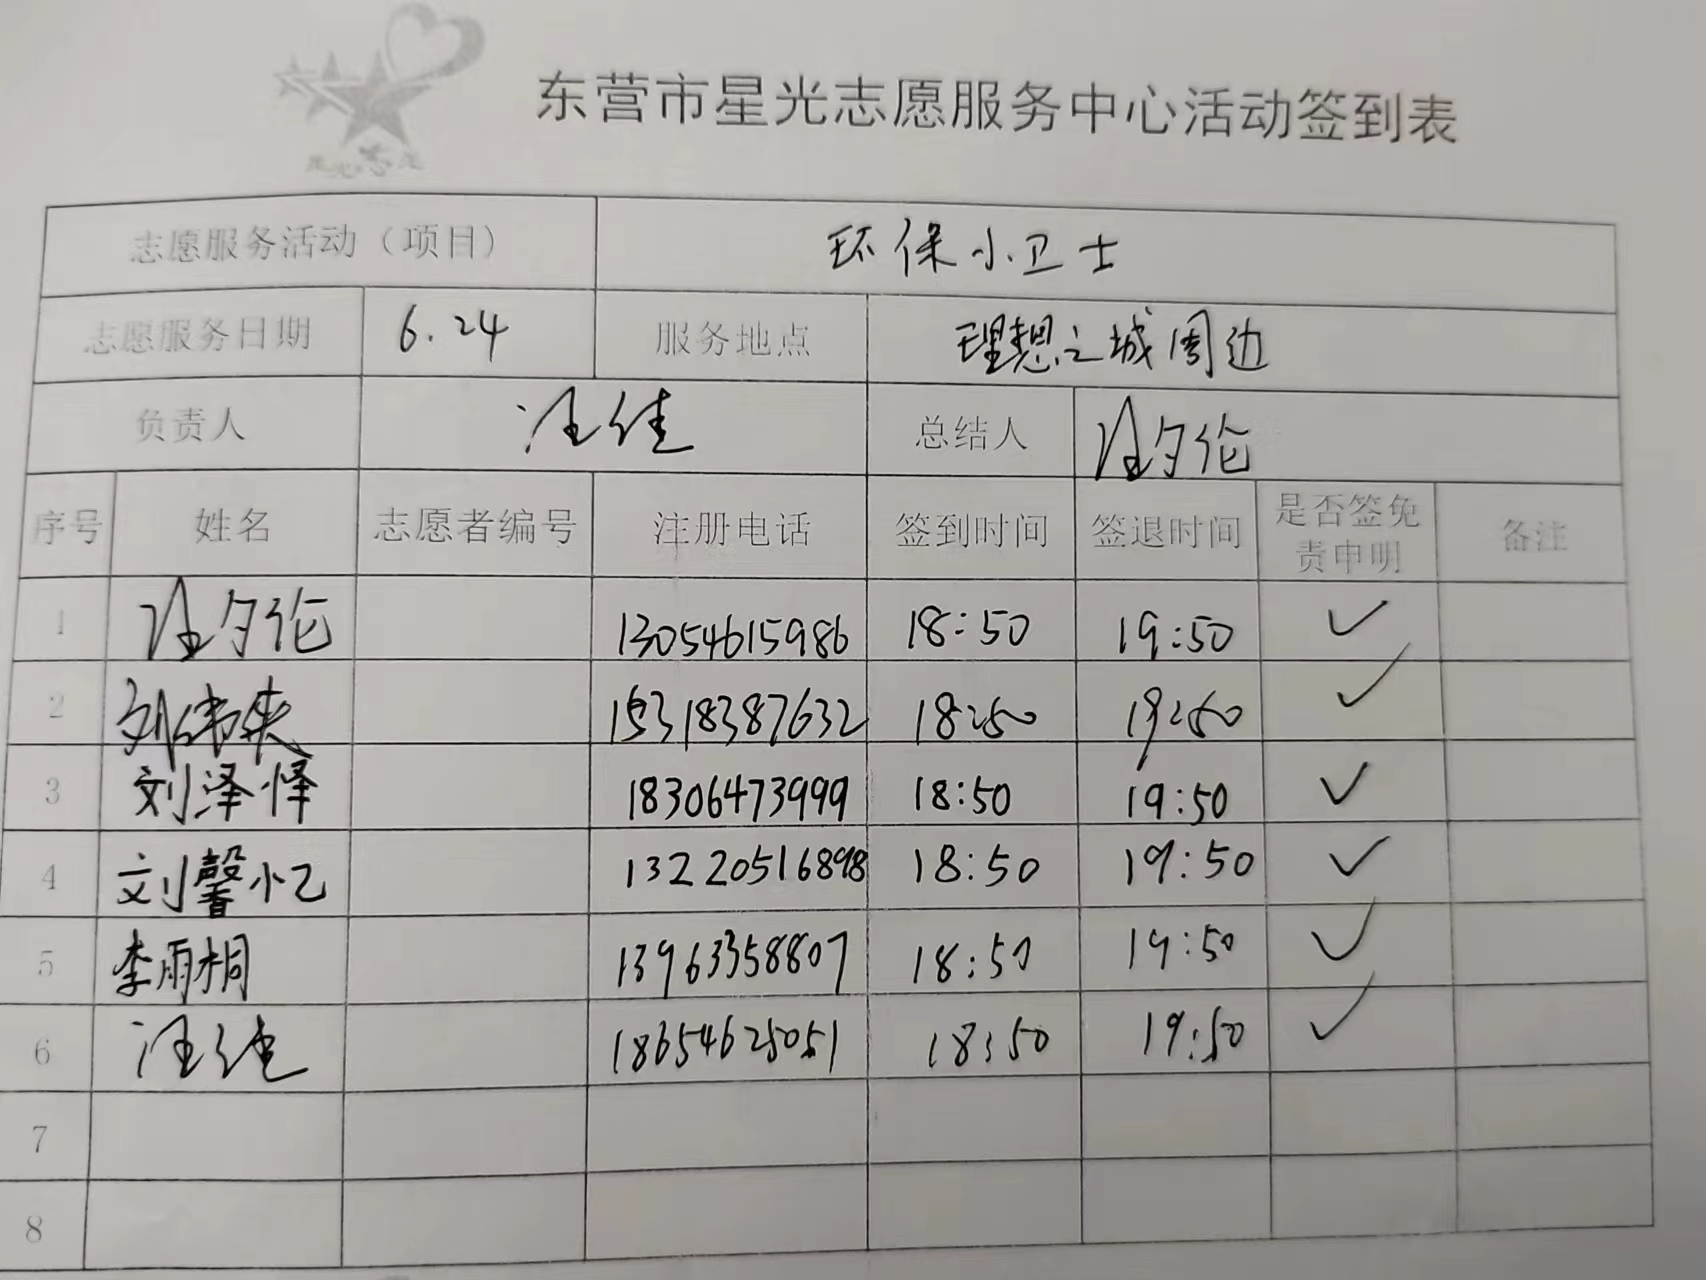 东营市星光志愿服务中心活动签到表
志愿服务活动（项目） 环保小卫士
志愿服务日期 6.24 服务地点 理想之城周边
负责人 汪佳 总结人 汪夕伦
序号 姓名 志愿者编号 注册电话 签到时间 签退时间 是否签免责申明 备注
1 汪夕伦 13054615986 18:50 19:50 ✓
2 刘 15318387632 18:50 19:50 ✓
3 刘泽怿 18306473999 18:50 19:50 ✓
4 刘馨忆 13220516898 18:50 19:50 ✓
5 李雨桐 13963358807 18:50 19:50 ✓
6 汪佳 18654625051 18:50 19:50 ✓
7
8